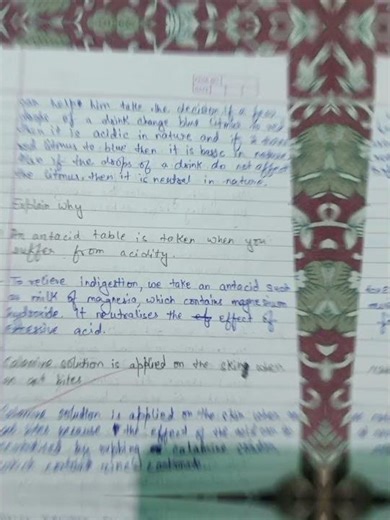 can help him take the decision if a few
drops of a drink change blue litmus to red
then it is acidic in nature and if it turns
red litmus to blue then it is basic in nature
then if the drops of a drink do not affect
the litmus. then it is neutral in nature.
Explain why
An antacid table is taken when you
suffer from acidity.
To relieve indigestion, we take an antacid such
as milk of magnesia, which contains magnesium
hydroxide. It neutralises the effect of
excessive acid.
Calamine solution is applied on the skin when
an ant bites
Calamine solution is applied on the skin when
ant bites because the effect of the acid can be
by calamine solution
which